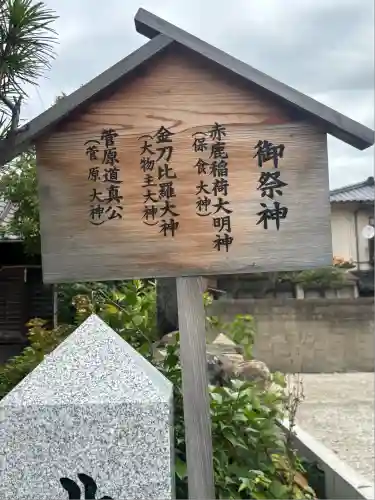 御祭神
赤鹿稲荷大明神
（保食大神）
金刀比羅大神
（大物主大神）
菅原道真公
（菅原大神）